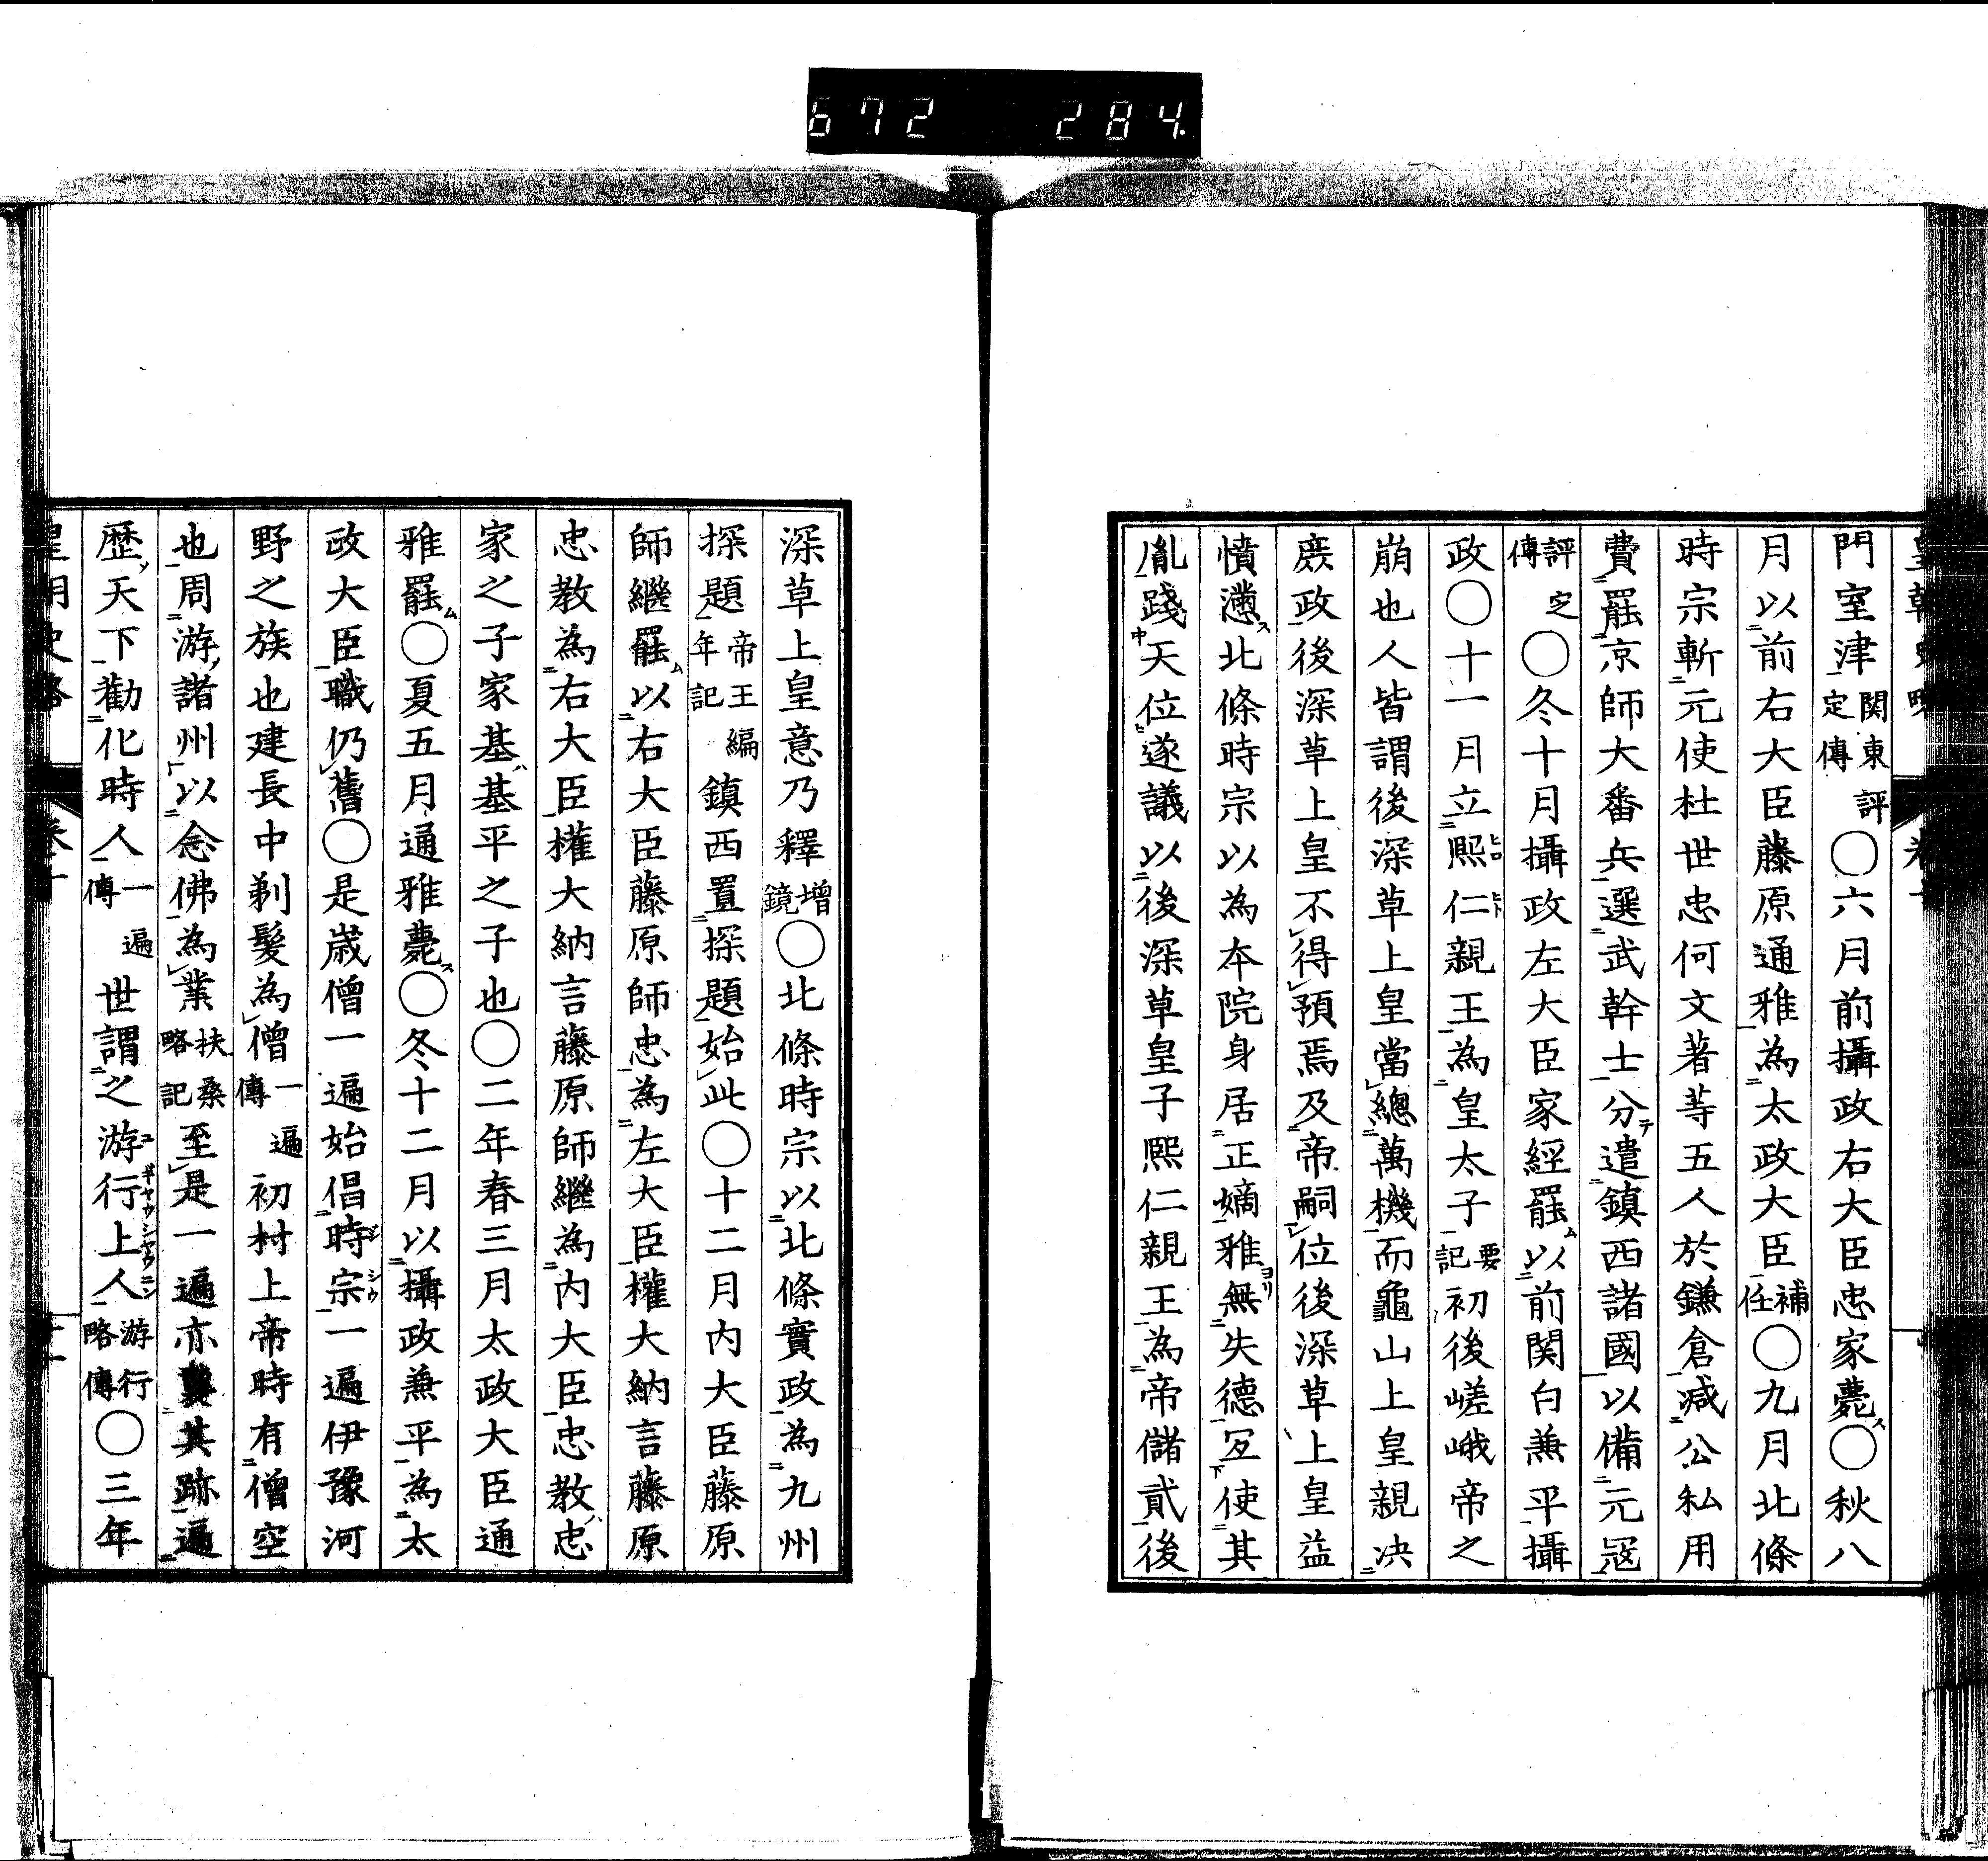 672 284
門室津関東評定傳〇六月前攝政右大臣忠家薨ス〇秋八
月以前右大臣藤原通雅為太政大臣補任〇九月北條
時宗斬元使杜世忠何文著等五人於鎌倉减公私用
費罷京師大番兵選武幹士分テ遣鎮西諸國以備元冦
評定傳〇冬十月攝政左大臣家經罷ム以前関白兼平攝
政〇十一月立熈仁親王為皇太子要記初後嵯峨帝之
崩也人皆謂後深草上皇當總萬機而龜山上皇親决
庶政後深草上皇不得預焉及帝嗣位後深草上皇益
憤懣ス北條時宗以為本院身居正嫡雅無失德冝使其
胤踐天位遂議以後深草皇子熈仁親王為帝儲貳後
深草上皇意乃釋增鏡〇北條時宗以北條實政為九州
探題帝王編年記鎮西置探題始此〇十二月内大臣藤原
師繼罷ム以右大臣藤原師忠為左大臣權大納言藤原
忠教為右大臣權大納言藤原師繼為内大臣忠教ハ忠
家之子家基ハ基平之子也〇二年春三月太政大臣通
雅罷ム〇夏五月通雅薨ス〇冬十二月以攝政兼平為太
政大臣職仍舊〇是歳僧一遍始倡時宗一遍伊豫河
野之族也建長中剃髮為僧一遍傳初村上帝時有僧空
也周游諸州以念佛為業扶桑略記至是一遍亦冀其跡遍
歴天下勸化時人一遍傳世謂之游行上人游行略傳〇三年